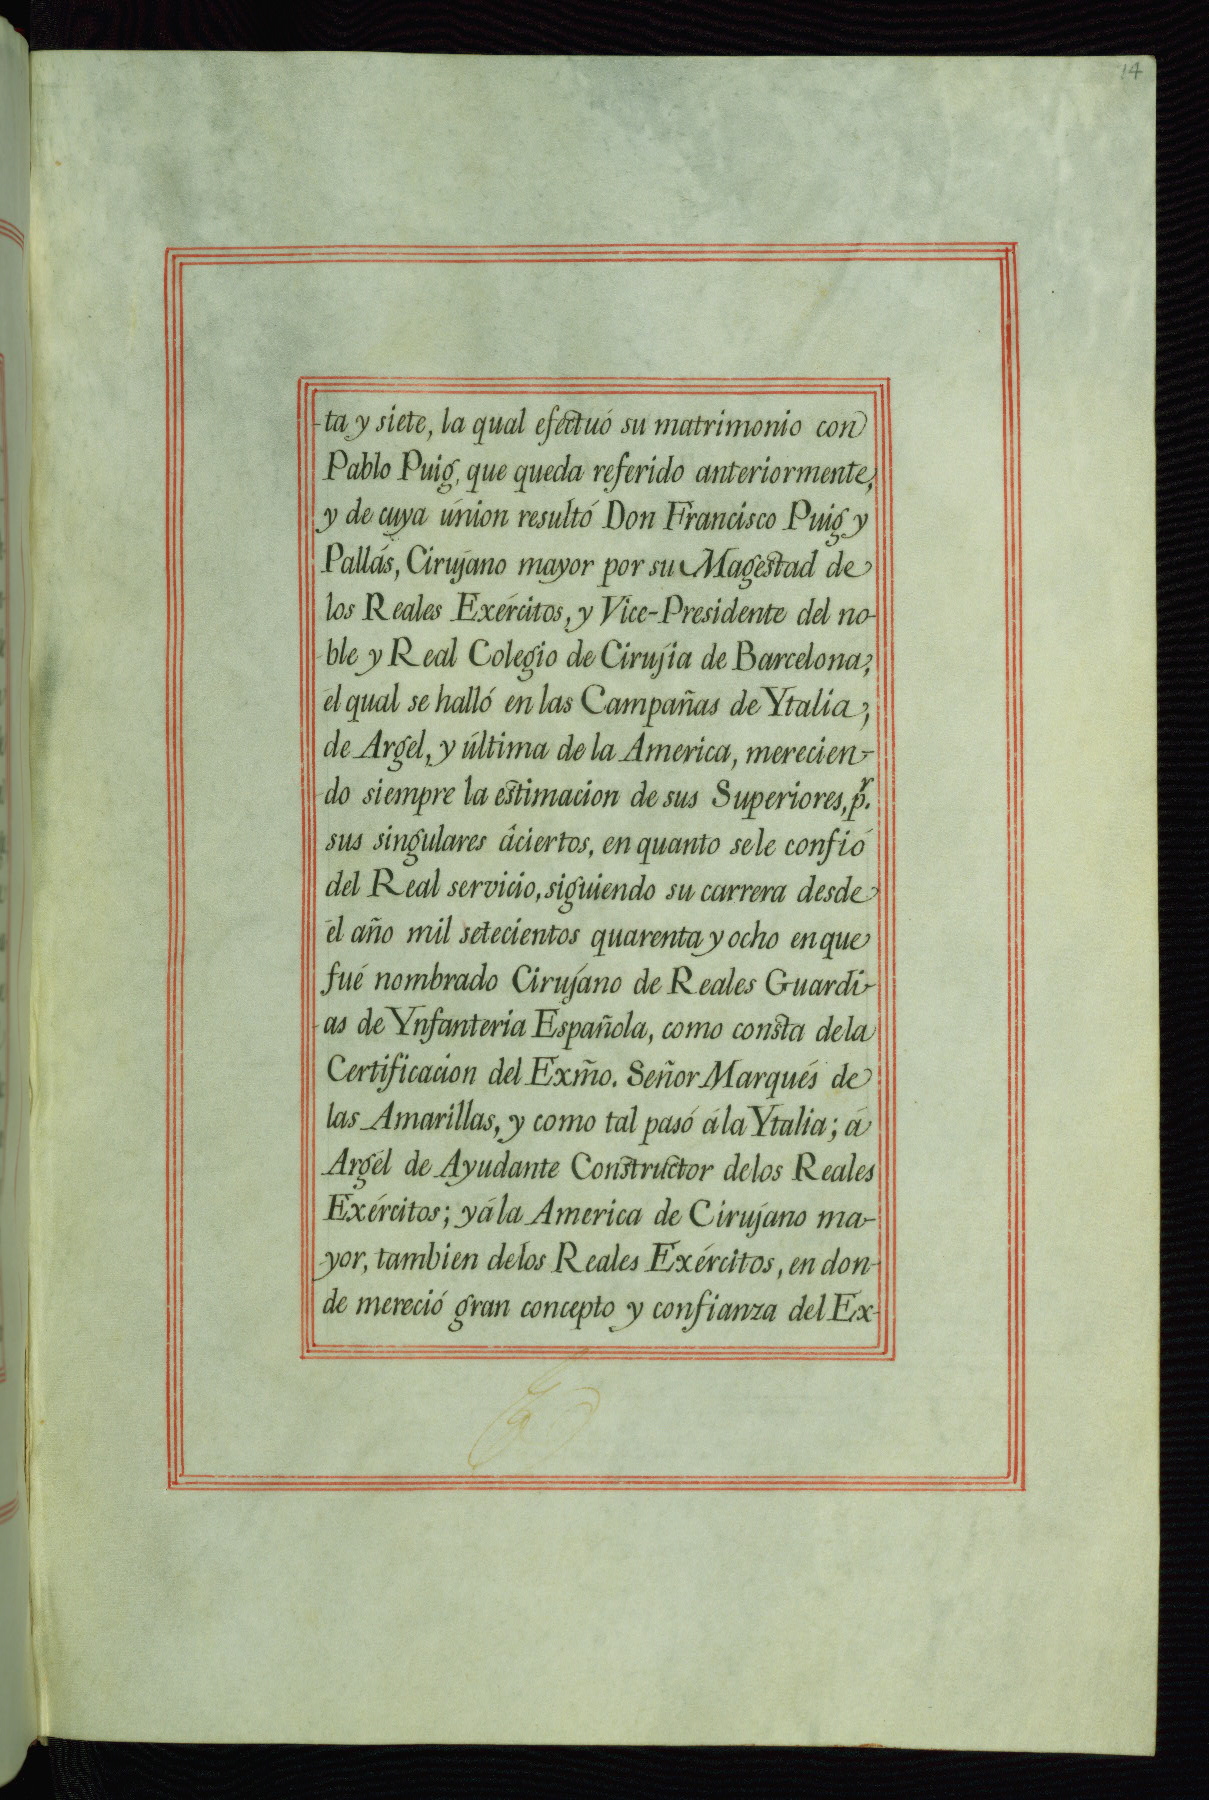 14
ta y siete, la qual efectuó su matrimonio con
Pablo Puig, que queda referido anteriormente,
y de cuya únion resultó Don Francisco Puig y
Pallás, Cirujano mayor por su Magestad de
los Reales Exércitos, y Vice-Presidente del no-
ble y Real Colegio de Cirujia de Barcelona;
él qual se halló en las Campañas de Ytalia;
de Argel, y última de la America, merecien-
do siempre la estimacion de sus Superiores, pr.
sus singulares âciertos, en quanto sele confió
del Real servicio, siguiendo su carrera desde
él año mil setecientos quarenta y ocho en que
fué nombrado Cirujano de Reales Guardi-
as de Ynfanteria Española, como consta dela
Certificacion del Exm̃o. Señor Marqués de
las Amarillas, y como tal pasó á la Ytalia; á
Argél de Ayudante Constructor delos Reales
Exércitos; y á la America de Cirujano ma-
yor, tambien delos Reales Exércitos, en don-
de mereció gran concepto y confianza del Ex-